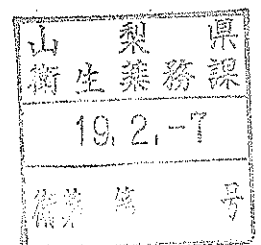 山梨県
衛生薬務課
19. 2. -7
衛薬第 号